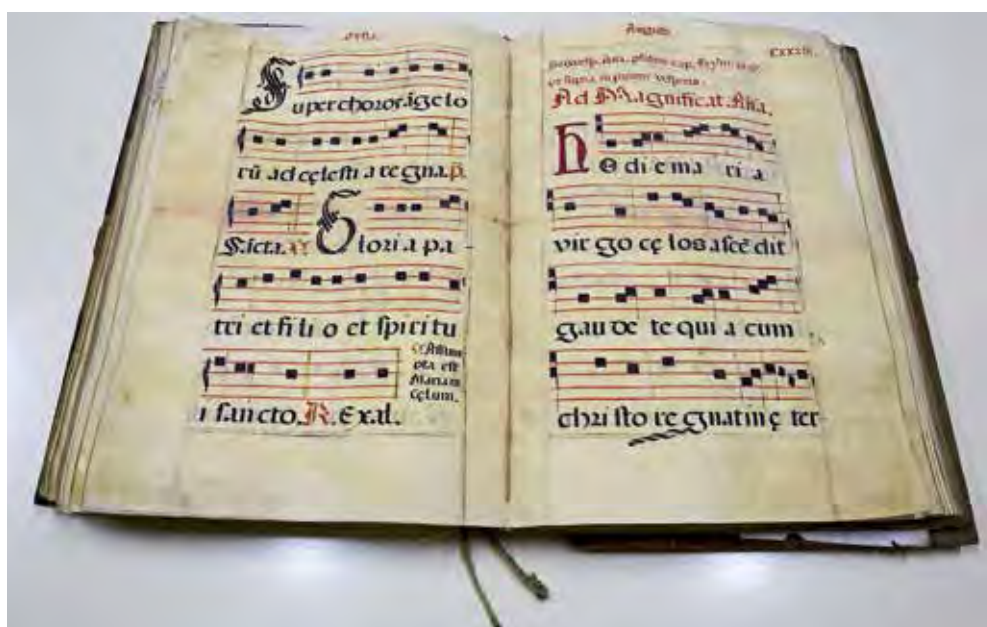 Super choros ãgelo
rũ ad cęlestia regna. p̃.
S.ãcta. ℣. Gloria pa-
tri et filio et spiritu
i sancto. ℟. Exal.
℣ Assum
pta est
Maria in
cęlum.
Augusti.
CXXXIII.
Ad Magnificat. Aña.
hodie maria
virgo cęlos ascẽdit
gaudete quia cum
christo regnat in ę ter-